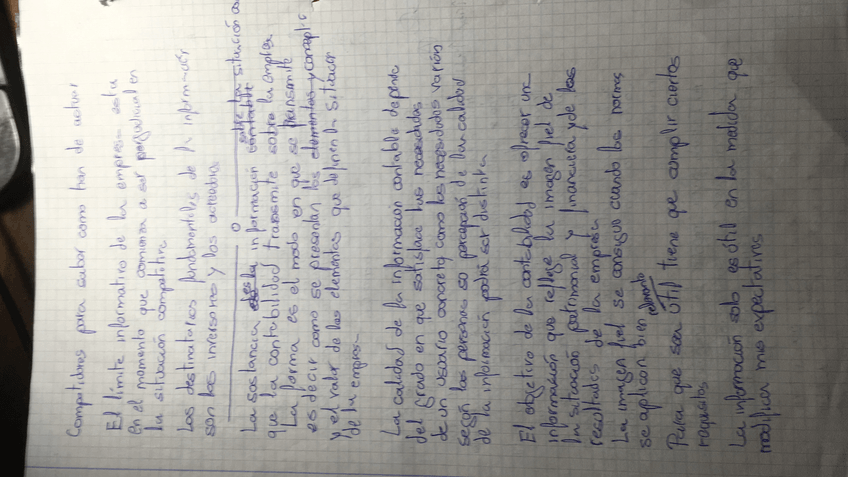 Competidores para saber como han de actuar
El límite informativo de la empresa esta
en el momento que comienza a ser perjudicial en
la situación competitiva.
Los destinatarios fundamentales de la información
son los inversores y los acreedores.
La sostancia es la información sobre la situación
que la contabilidad transmite sobre la empresa
La forma es el modo en que se transmite
es decir como se presentan los elementos y
y el valor de los elementos que definen la situación
de la empresa
La calidad de la información contable depende
del grado en que satisface las necesidades
de un usuario concreto y como las necesidades varian
según las personas su percepción de la calidad
de la información podra ser distinta.
El objetivo de la contabilidad es ofrecer una
información que refleje la imagen fiel de
la situación patrimonial y financiera y de los
resultados de la empresa
La imagen fiel se consigue cuando las normas
se aplican bien
Para que sea útil relevante tiene que cumplir ciertos
requisitos
La información solo es útil en la medida que
modifica mis expectativas